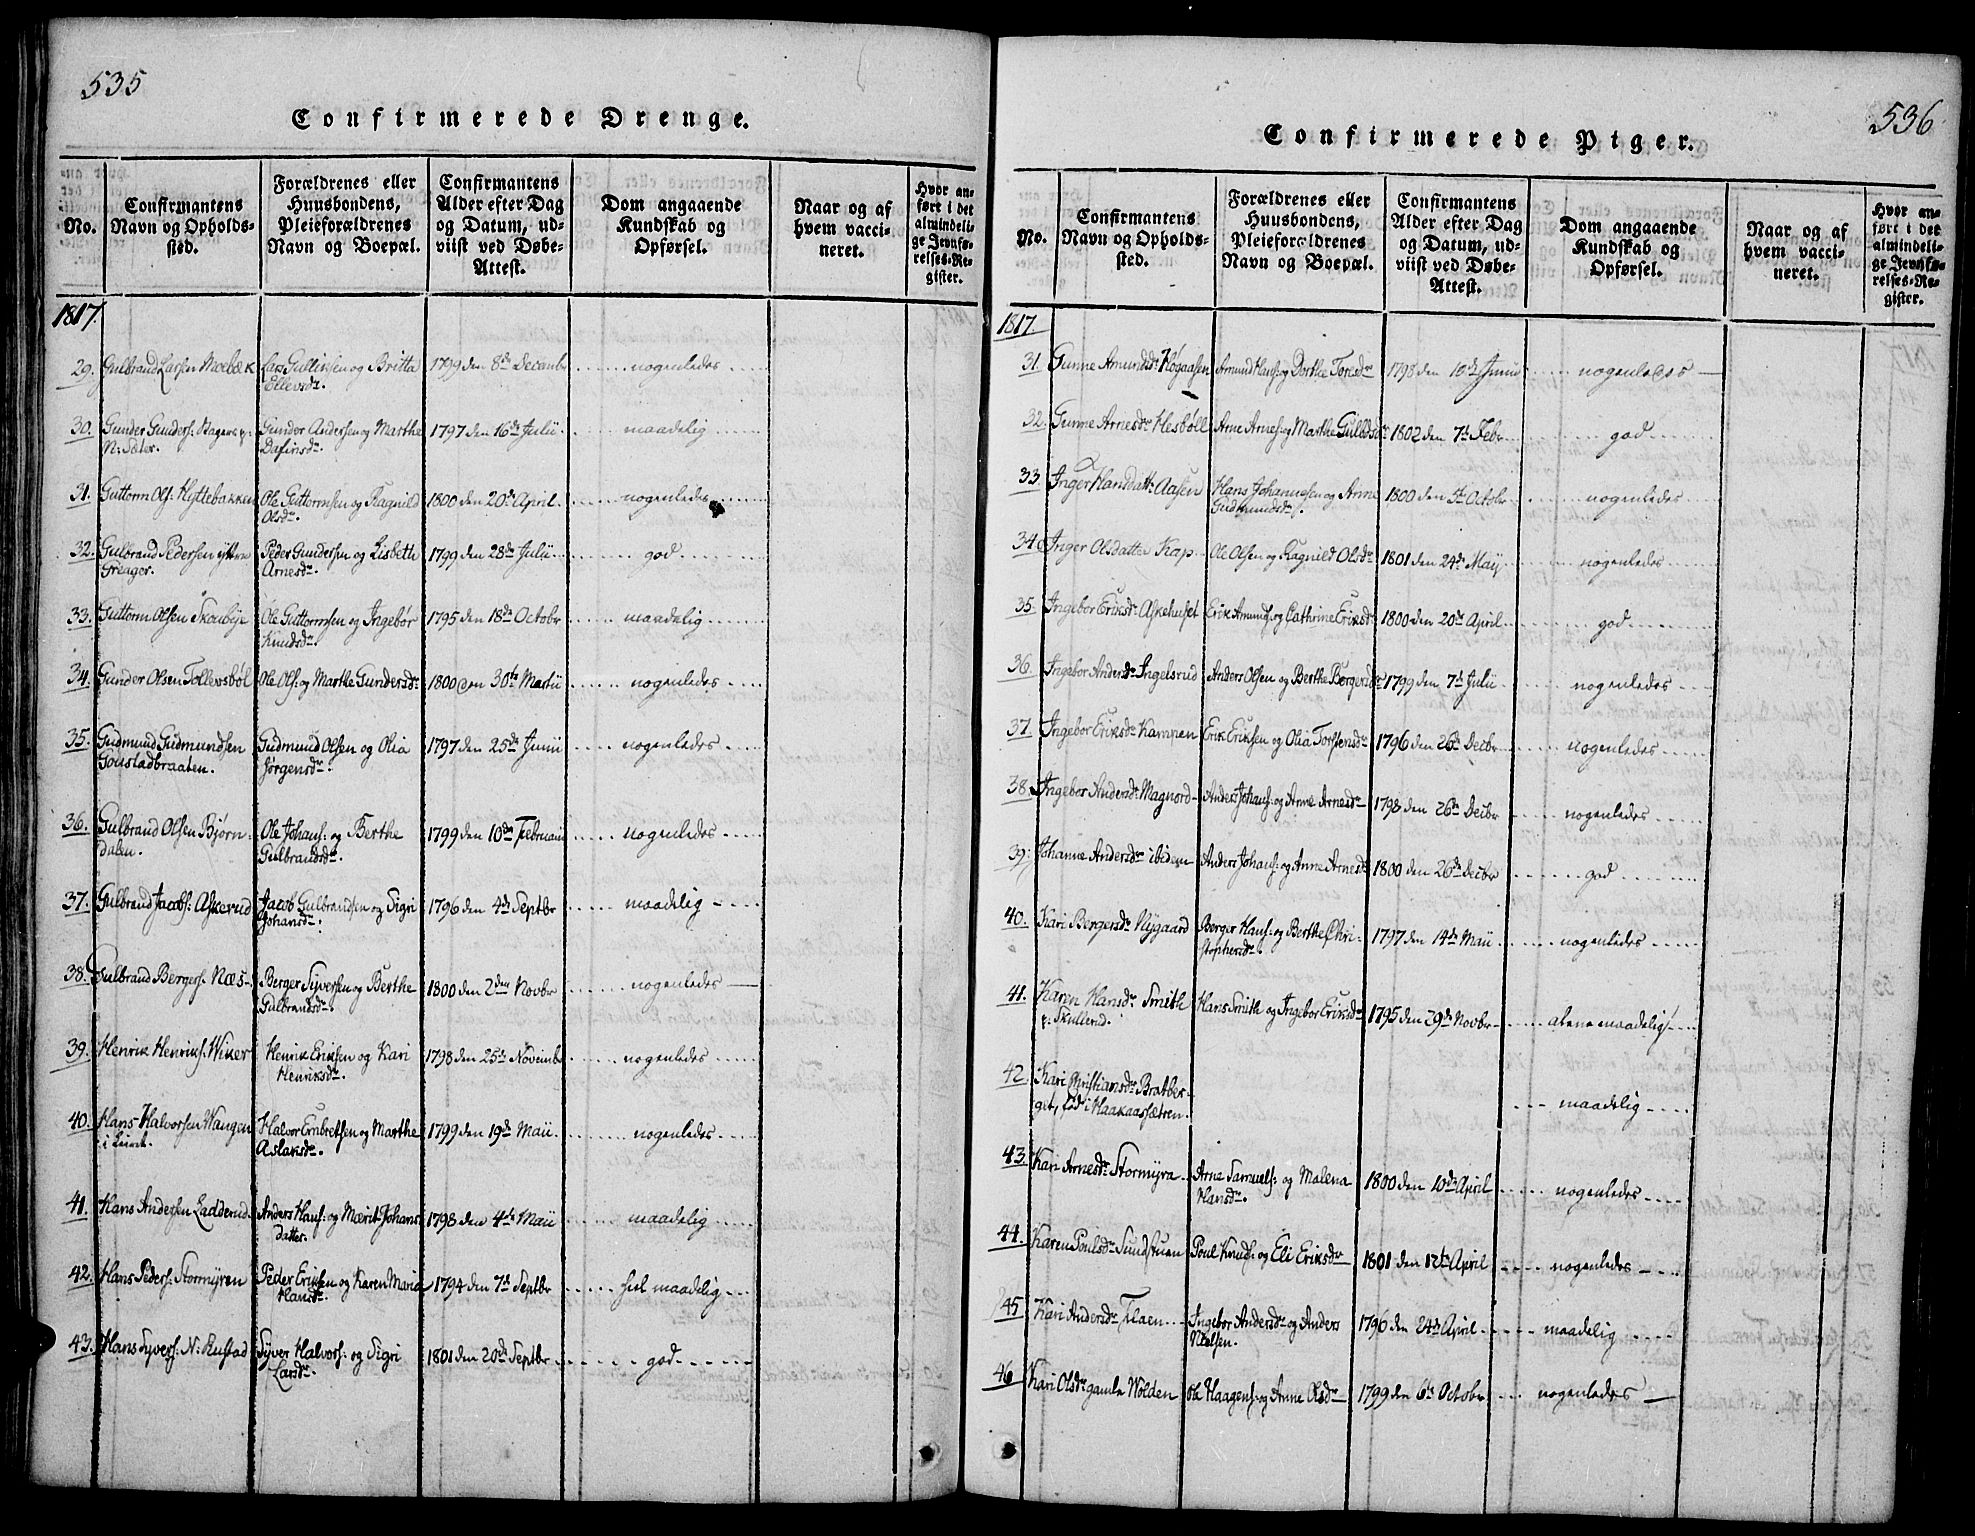 535
Confirmerede Drenge.
No.
Confirmantens
Navn og Opholds-
sted.
Forældrenes eller
Huusbondens,
Pleieforældrenes
Navn og Boepæl.
Confirmantens
Alder efter Dag
og Datum, ud-
viist ved Døbe-
Attest.
Dom angaaende
Kundskab og
Opførsel.
Naar og af
hvem vacci-
neret.
Hvor an-
ført i det
almindeli-
ge Jevnfø-
relses-Re-
gister.
1817.
29. Gulbrand Larsen Moebæk Lars Gullissen og Britta 1799 den 8de Decembr nogenledes
Ellevsdr.
30. Gunder Gunders: Gunder Andersen og Marthe 1797 den 16de Julii maadelig
N: Sæter. Dafinsdr.
31. Guttorm Ols: Hyttebakken Ole Guttormsen og Ragnild 1800 den 20de April nogenledes
Olsdr.
32. Gulbrand Pedersen yttre Peder Gundersen og Lisbeth 1799 den 28de Julii god
Greager. Arnesdr.
33. Guttorm Olsen Skoubye Ole Guttormsen og Ingebør 1795 den 18de Octobr maadelig
Knudsdr.
34. Gunder Olsen Tollevsbøl Ole Ols: og Marthe Gundersdr. 1800 den 30te Martii nogenledes
35. Gudmund Gudmundsen Gudmund Olsen og Olia 1797 den 25de Junii nogenledes
Goustadbraaten. Jørgensdr.
36. Gulbrand Olsen Bjørn- Ole Johans: og Berthe 1799 den 10de Februarii nogenledes
dalen. Gulbrandsdr.
37. Gulbrand Jacobs: Askerud Jacob Gulbrandsen og Sigri 1796 den 4de Septbr maadelig
Johansdr.
38. Gulbrand Bergers: Næs Berger Syversen og Berthe 1800 den 2den Novbr nogenledes
Gulbrandsdr.
39. Henrik Henriks: Wiker Henrik Eriksen og Kari 1798 den 25de Novembr nogenledes
Henriksdr.
40. Hans Halvorsen Wangen Halvor Embretsen og Marthe 1799 den 19de Maii nogenledes
Aslaksdr.
41. Hans Andersen Ladderud Anders Hans: og Marit Johans 1798 den 4de Maii maadelig
datter.
42. Hans Peders: Stormyren Peder Eriksen og Karen Maria 1794 den 7de Septbr heel maadelig
Hansdr.
43. Hans Syvers: N: Rustad Syver Halvors: og Sigri 1801 den 20de Septbr god
Larsdr.
536
Confirmerede Piger.
No.
Confirmantens
Navn og Opholds-
sted.
Forældrenes eller
Huusbondens,
Pleieforældrenes
Navn og Boepæl.
Confirmantens
Alder efter Dag
og Datum, ud-
viist ved Døbe-
Attest.
Dom angaaende
Kundskab og
Opførsel.
Naar og af
hvem vacci-
neret.
Hvor an-
ført i det
almindeli-
ge Jevnfø-
relses-Re-
gister.
1817.
31. Gunne Amundsdr. Høgaasen Amund Hans: og Dorthe Toresdr 1798 den 10de Junii nogenledes
32. Gunne Arnesdr. Hesbøll Arne Arnes: og Marthe Gulbrdr 1802 den 7de Febr god
33. Inger Hansdatt: Aasen Hans Johannesen og Anne 1800 den 5te Octobr nogenledes
Gudmundsdr.
34. Inger Olsdatter Kap Ole Olsen og Ragnild Olsdr 1801 den 24de Maij nogenledes
35. Ingebor Eriksdr: Askehuset Erik Amunds: og Cathrine Eriksdr 1800 den 20de April god
36. Ingebor Andersdr. Ingelsrud Anders Olsen og Berthe Bergersdr 1799 den 7de Julii nogenledes
37. Ingebor Eriksdr: Kampen Erik Eriksen og Olia Torstensdr 1796 den 26de Decbr nogenledes
38. Ingebor Andersdr: Magnord Anders Johans: og Anne Arnesdr 1798 den 26de Decbr nogenledes
39. Johanne Andersdr. ibidem Anders Johans: og Anne Arnesdr 1800 den 26de Decbr god
40. Kari Bergersdr. Nygaard Berger Hans: og Berthe Chri- 1797 den 14de Maii nogenledes
stophersdr.
41. Karen Hansdr. Smith Hans Smith og Ingebor Eriksdr 1795 den 29de Novbr alene maadelig
p: Skullerud.
42. Kari Christiansdr. Bratber-
get, fød i Haakaassætren. maadelig
43. Kari Arnesdr. Stormyra Arne Samuels: og Malena 1800 den 10de April nogenledes
Hansdr.
44. Karen Poulsdr. Sundstuen Poul Knuds: og Eli Eriksdr 1801 den 12te April nogenledes
45 Kari Andersdr. Flaen Ingebor Andersdr og Anders 1796 den 24de April maadelig
Nielsen.
46 Kari Olsdr. gamle Wolden Ole Haagens: og Anne Olsdr 1799 den 6te Octobr nogenledes